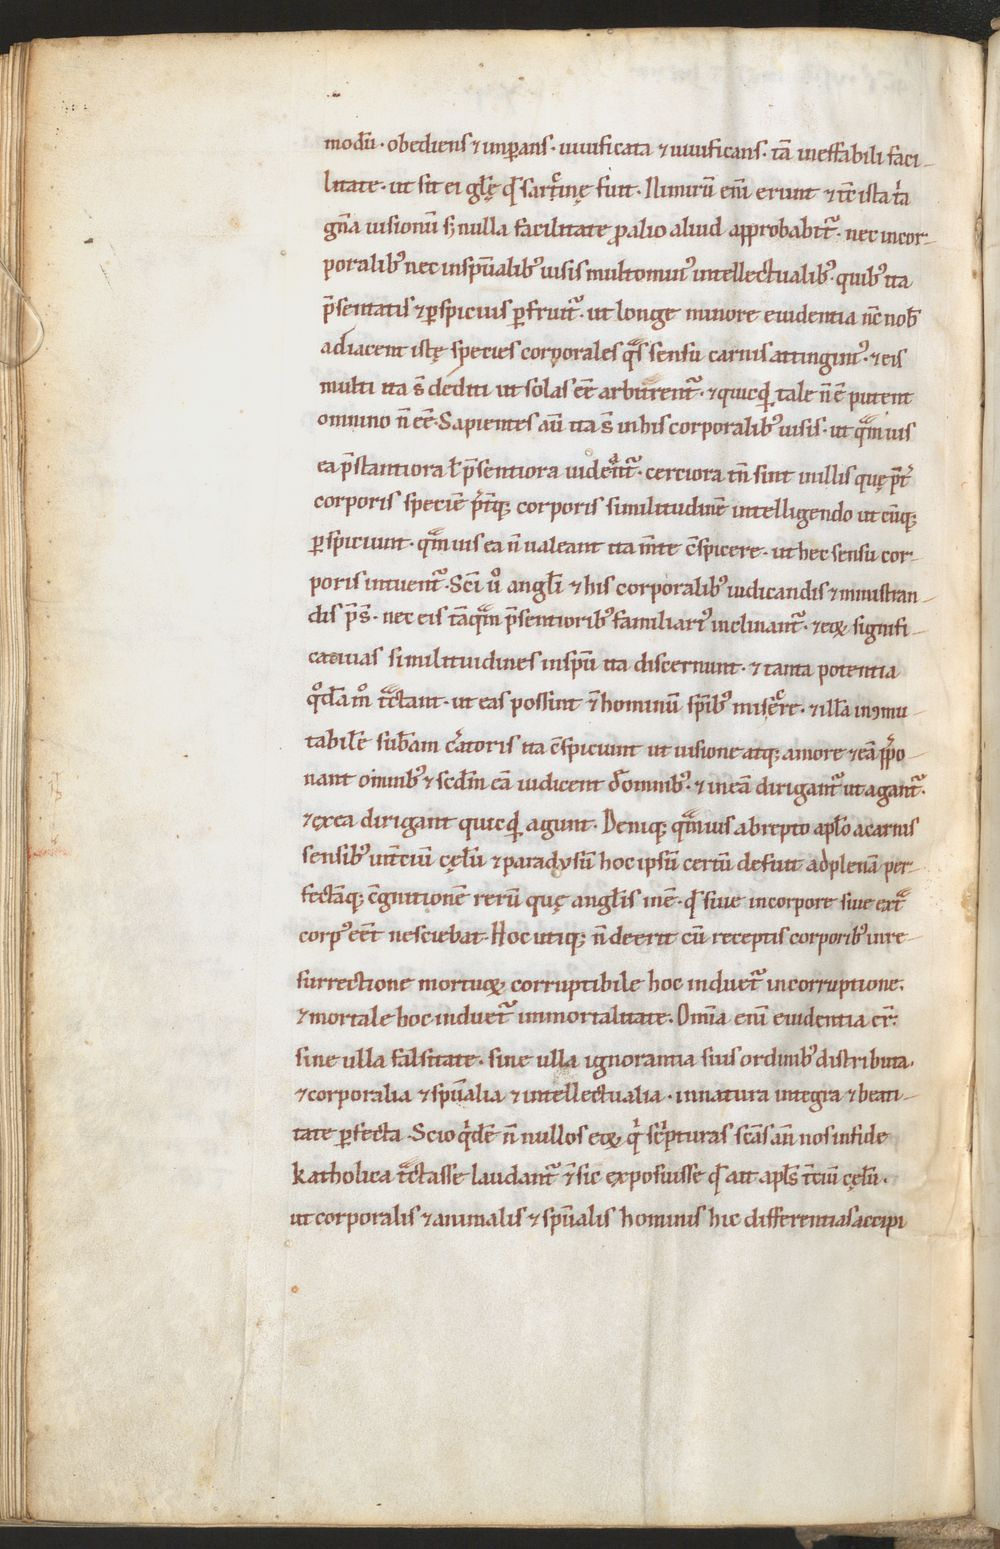 modū · obediens ⁊ imꝑans · uiuificata ⁊ uiuificans · tā ineffabili faci-
litate · ut sit ei gl̄ę qđ sarcinę fuit · Nimirū eni̅ erunt ⁊ tc̄ ista tia
gn̄a uisionū sꝫ nulla facilitate ꝓ alio aliud approbabit᷑ · nec incor-
poralibꝰ nec in spūalibꝰ uisis multominꝰ intellectualibꝰ · quibꝰ ita
p̄sentatis ⁊ ꝑspicuis ꝑfruit᷑ · ut longe minore euidentia nc̄ nob̄
adiacent istę species corporales q̄s sensu carnis attingimꝰ · ⁊ eis
multi ita s̄ dediti ut solas eē̄ arbitrent᷑ · ⁊ quicqd tale n̄ ē putent
omnino n̄ eē · Sapientes aū ita s̄ in his corporalibꝰ uisis · ut qm̄uis
ea p̄stantiora ł p̄sentiora uideant᷑ · cerciora tn̄ sint in illis quę p̄t̄
corporis speciē p̄t̄qꝫ corporis similitudinē intelligendo utcūqꝫ
ꝑspiciunt · qm̄uis ea n̄ ualeant ita m̄te c̄spicere · ut hec sensu cor-
poris intuent᷑ · Sc̄i ů angłi ⁊ his corporalibꝰ iudicandis ⁊ ministran-
dis p̄s̄ · nec eis tāqm̄ p̄sentioribꝰ familiariꝰ inclinant᷑ · ⁊ eoꝝ signifi-
catiuas similitudines in spū ita discernunt · ⁊ tanta potentia
qd̊ā m̊ tc̄tant · ut eas possint ⁊̄ hominū spībꝰ miscere · ⁊ illā inꝯmu-
tabilē sub̄am c̄atoris ita c̄spiciunt ut uisione atqꝫ amore ⁊ eā p̄po-
nant om̄ibꝰ ⁊ sc̄dm eā iudicent đ omnibꝰ · ⁊ in eā dirigant᷑ ut agant᷑ ·
⁊ ex ea dirigant quicqd agunt · Deniqꝫ qm̄uis abrepto apło a carnis
sensibꝰ in t̄ciū cęlū ⁊ paradysū hoc ipsū certū defuit ad plenā per-
fectāqꝫ c̄gnitionē rerū quę angłis inē · qđ siue in corpore siue ext̄
corpꝰ eēt nesciebat · Hoc utiqꝫ n̄ deerit cū receptis corporibꝰ in re-
surrectione mortuoꝝ corruptibile hoc induet᷑ incorruptione ·
⁊ mortale hoc induet᷑ immortalitate · Om̄ia eni̅ euidentia er̄t
sine ulla falsitate · sine ulla ignorantia suis ordinibꝰ distributa ·
⁊ corporalia ⁊ spūalia ⁊ intellectualia · in natura integra ⁊ beati-
tate ꝑfecta · Scio qdē n̄ nullos eoꝝ qi sc̄pturas sc̄as an̄ nos in fide
katholica tc̄tasse laudant᷑ ⁊̄ sic exposuisse qđ ait apłs t̄ciū cęlū ·
ut corporalis ⁊ animalis ⁊ spūalis hominis hic differentias accipi